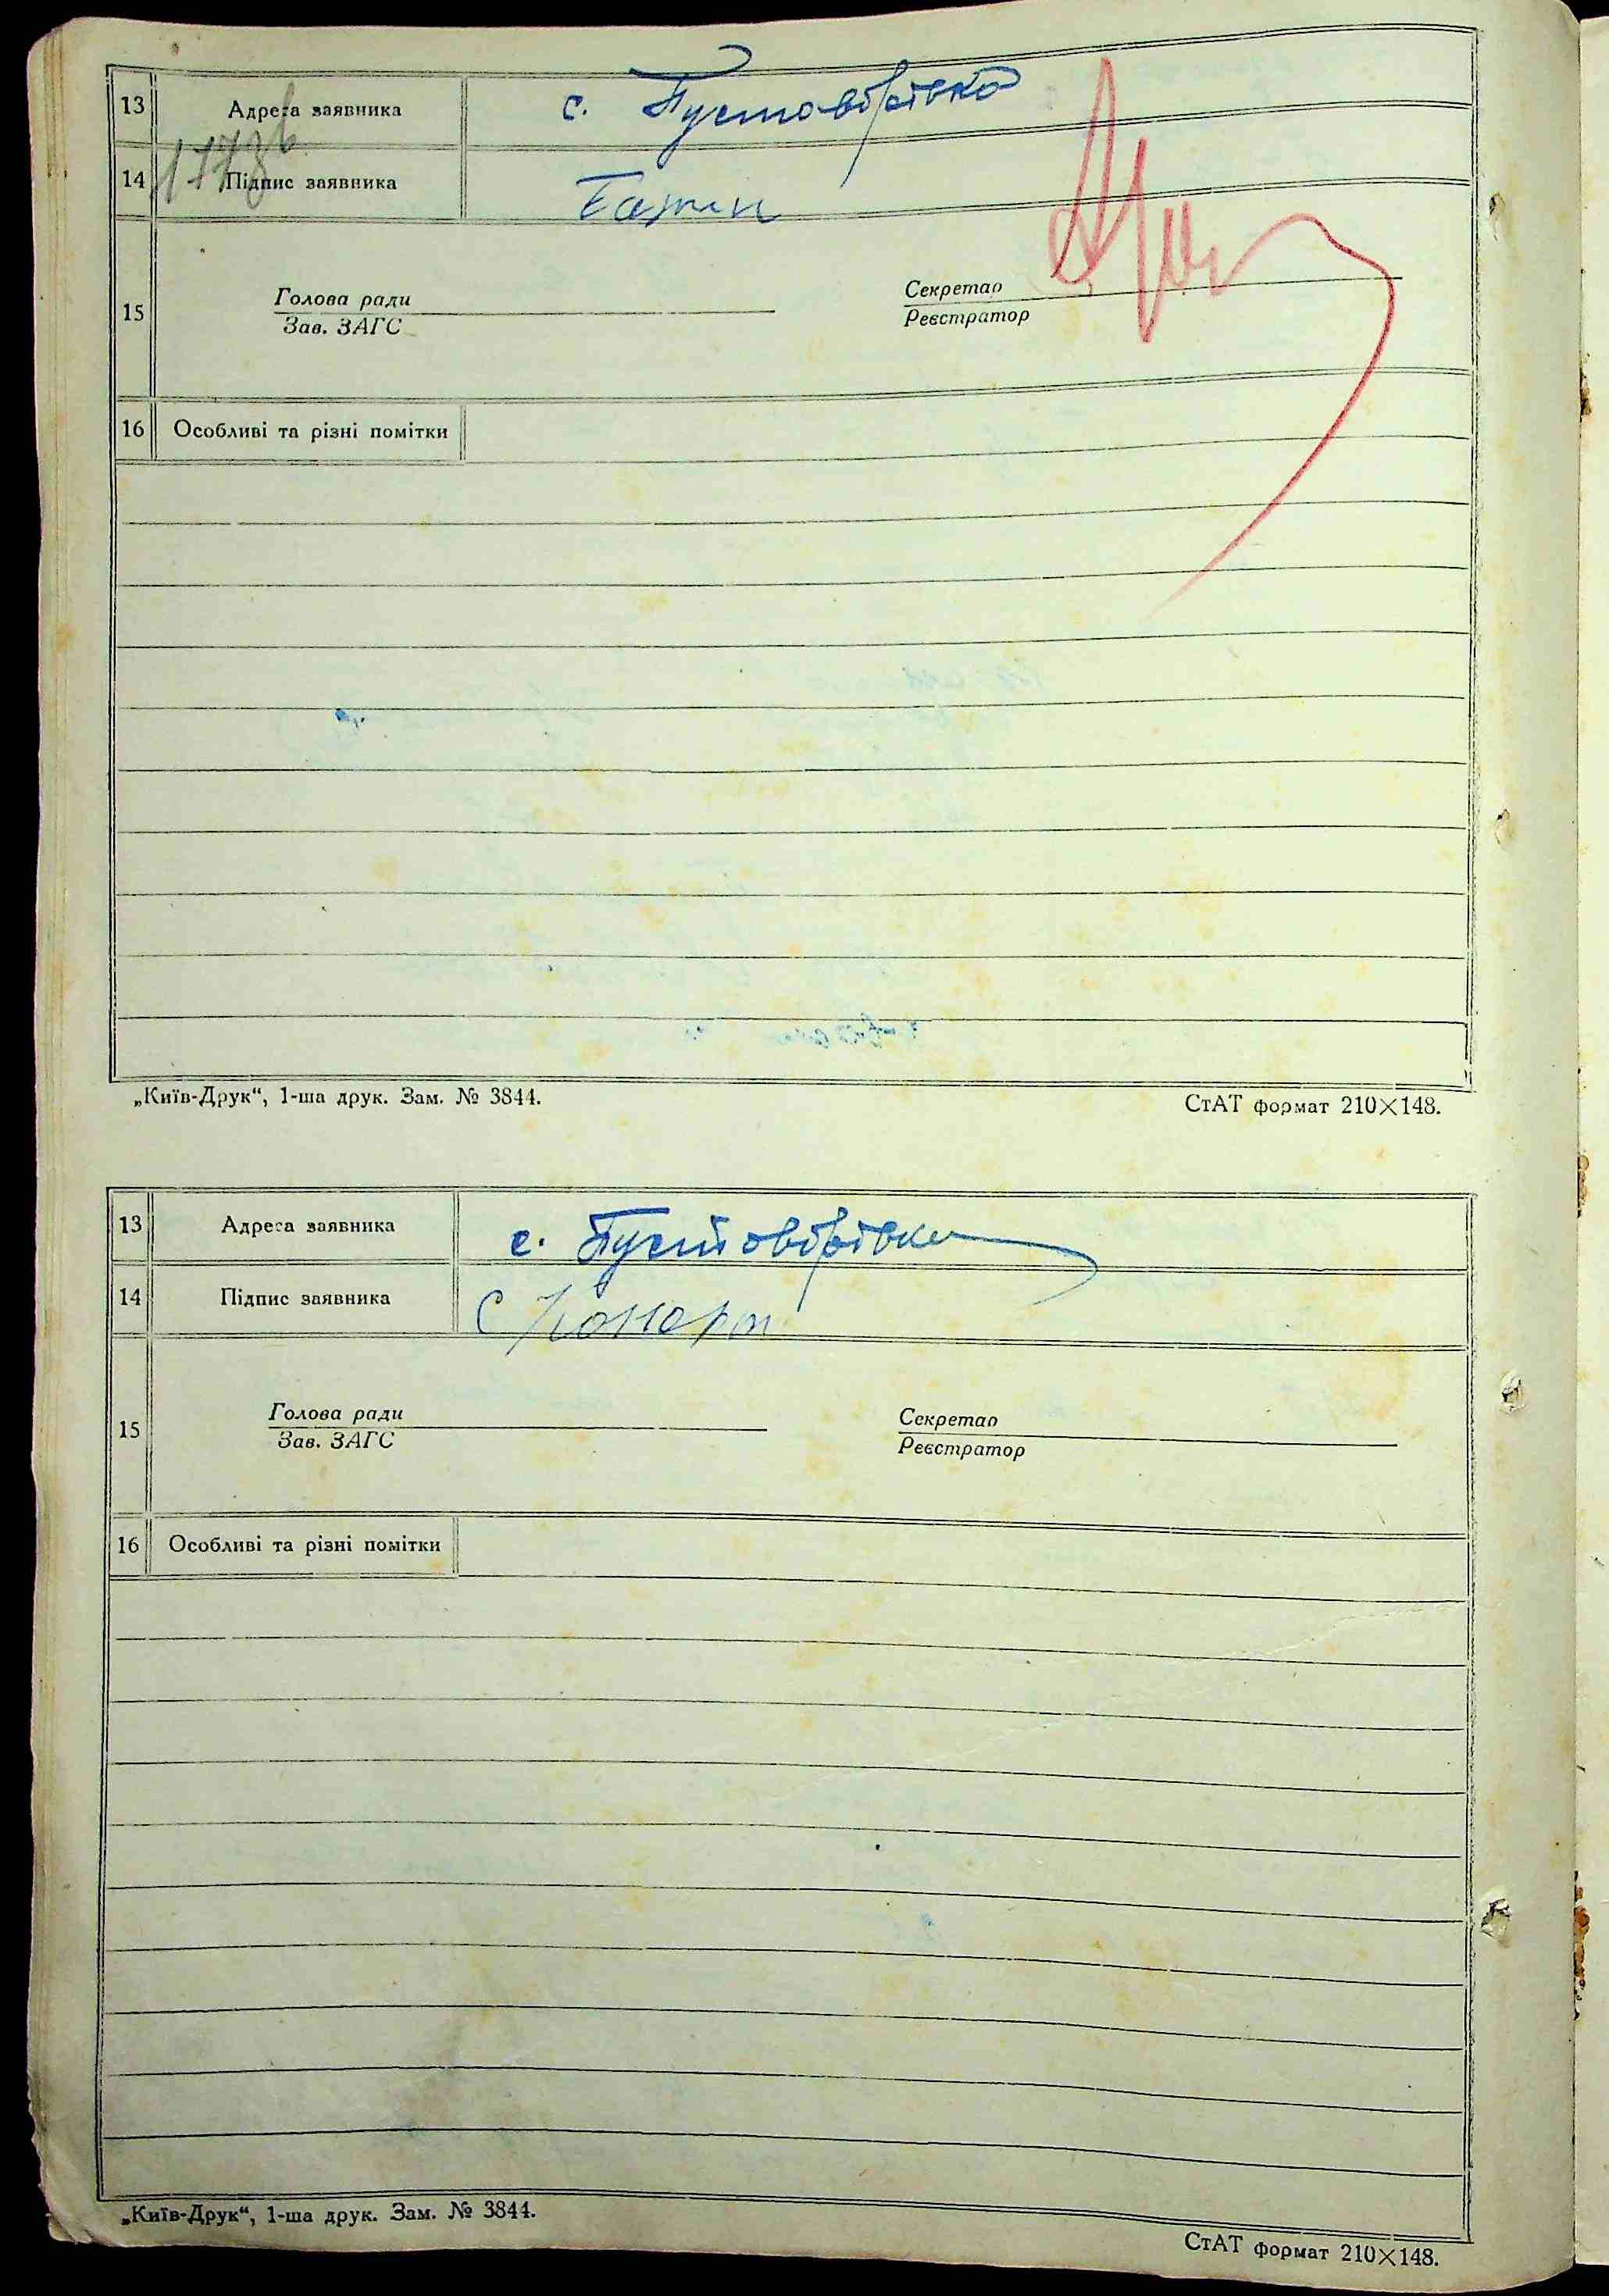 13 Адреса заявника с. Пустовірівка
14 Підпис заявника
15 Голова ради Секретар
Зав. ЗАГС Реєстратор
16 Особливі та різні помітки
„Київ-Друк“, 1-ша друк. Зам. № 3844. СтАТ формат 210×148.
13 Адреса заявника с. Пустовірівка
14 Підпис заявника
15 Голова ради Секретар
Зав. ЗАГС Реєстратор
16 Особливі та різні помітки
„Київ-Друк“, 1-ша друк. Зам. № 3844.
СтАТ формат 210×148.